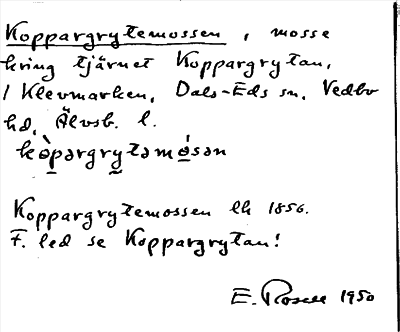 Koppargrytemossen, mosse
kring tjärnet Koppargrytan,
i Klevmarken, Dals-Eds sn, Vedbo
hd, Älvsb. l.
kòpargrytamósan
Koppargrytemossen lk 1856.
F. led se Koppargrytan!
E. Rosell 1950